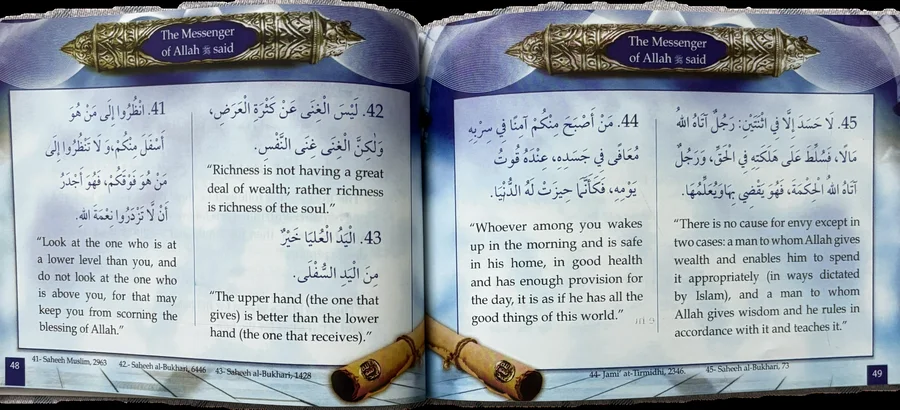 The Messenger
of Allah ﷺ said
41. انْظُرُوا إِلَى مَنْ هُوَ
أَسْفَلَ مِنْكُمْ، وَ لَا تَنْظُرُوا إِلَى
مَنْ هُوَ فَوْقَكُمْ، فَهُوَ أَجْدَرُ
أَنْ لَّا تَزْدَرُوا نِعْمَةَ اللهِ.
“Look at the one who is at
a lower level than you, and
do not look at the one who
is above you, for that may
keep you from scorning the
blessing of Allah.”
42. لَيْسَ الْغِنَى عَنْ كَثْرَةِ الْعَرَضِ،
وَلَكِنَّ الْغِنَى غِنَى النَّفْسِ.
“Richness is not having a great
deal of wealth; rather richness
is richness of the soul.”
43. الْيَدُ الْعُلْيَا خَيْرٌ
مِنَ الْيَدِ السُّفْلَى.
“The upper hand (the one that
gives) is better than the lower
hand (the one that receives).”
48
41- Saheeh Muslim, 2963 42.- Saheeh al-Bukhari, 6446 43- Saheeh al-Bukhari, 1428
The Messenger
of Allah ﷺ said
44. مَنْ أَصْبَحَ مِنْكُمْ آمِنًا فِي سِرْبِهِ
مُعَافًى فِي جَسَدِهِ، عِنْدَهُ قُوتُ
يَوْمِهِ، فَكَأَنَّمَا حِيزَتْ لَهُ الدُّنْيَا.
“Whoever among you wakes
up in the morning and is safe
in his home, in good health
and has enough provision for
the day, it is as if he has all the
good things of this world.”
45. لَا حَسَدَ إِلَّا فِي اثْنَتَيْنِ: رَجُلٌ آتَاهُ اللهُ
مَالًا، فَسُلِّطَ عَلَى هَلَكَتِهِ فِي الْحَقِّ، وَرَجُلٌ
آتَاهُ اللهُ الْحِكْمَةَ، فَهُوَ يَقْضِي بِهَا وَيُعَلِّمُهَا.
“There is no cause for envy except in
two cases: a man to whom Allah gives
wealth and enables him to spend
it appropriately (in ways dictated
by Islam), and a man to whom
Allah gives wisdom and he rules in
accordance with it and teaches it.”
44- Jami' at-Tirmidhi, 2346. 45- Saheeh al-Bukhari, 73
49